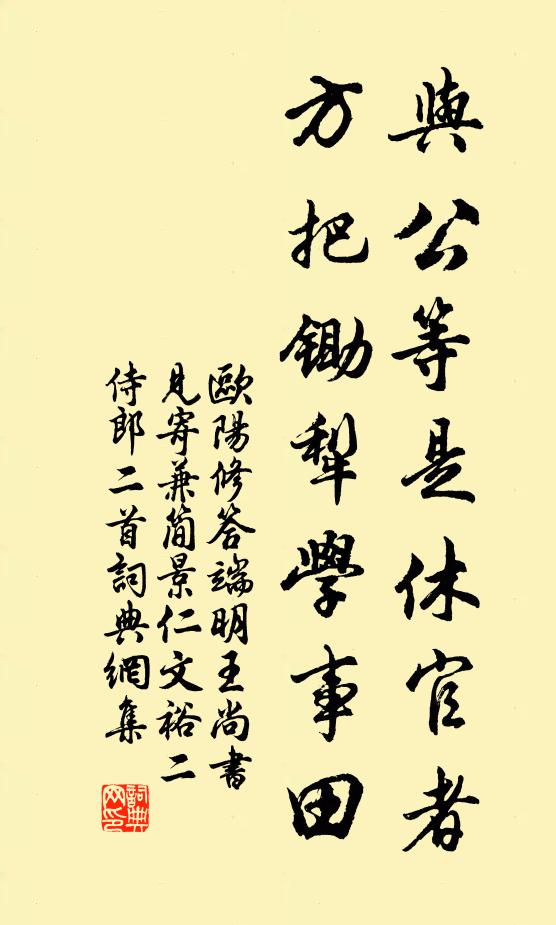 與公等是休官者
方把鋤犁學事田
歐陽修答端明王尚書
見寄兼簡景仁文裕二
侍郎二首詞典網集
詞典
网印